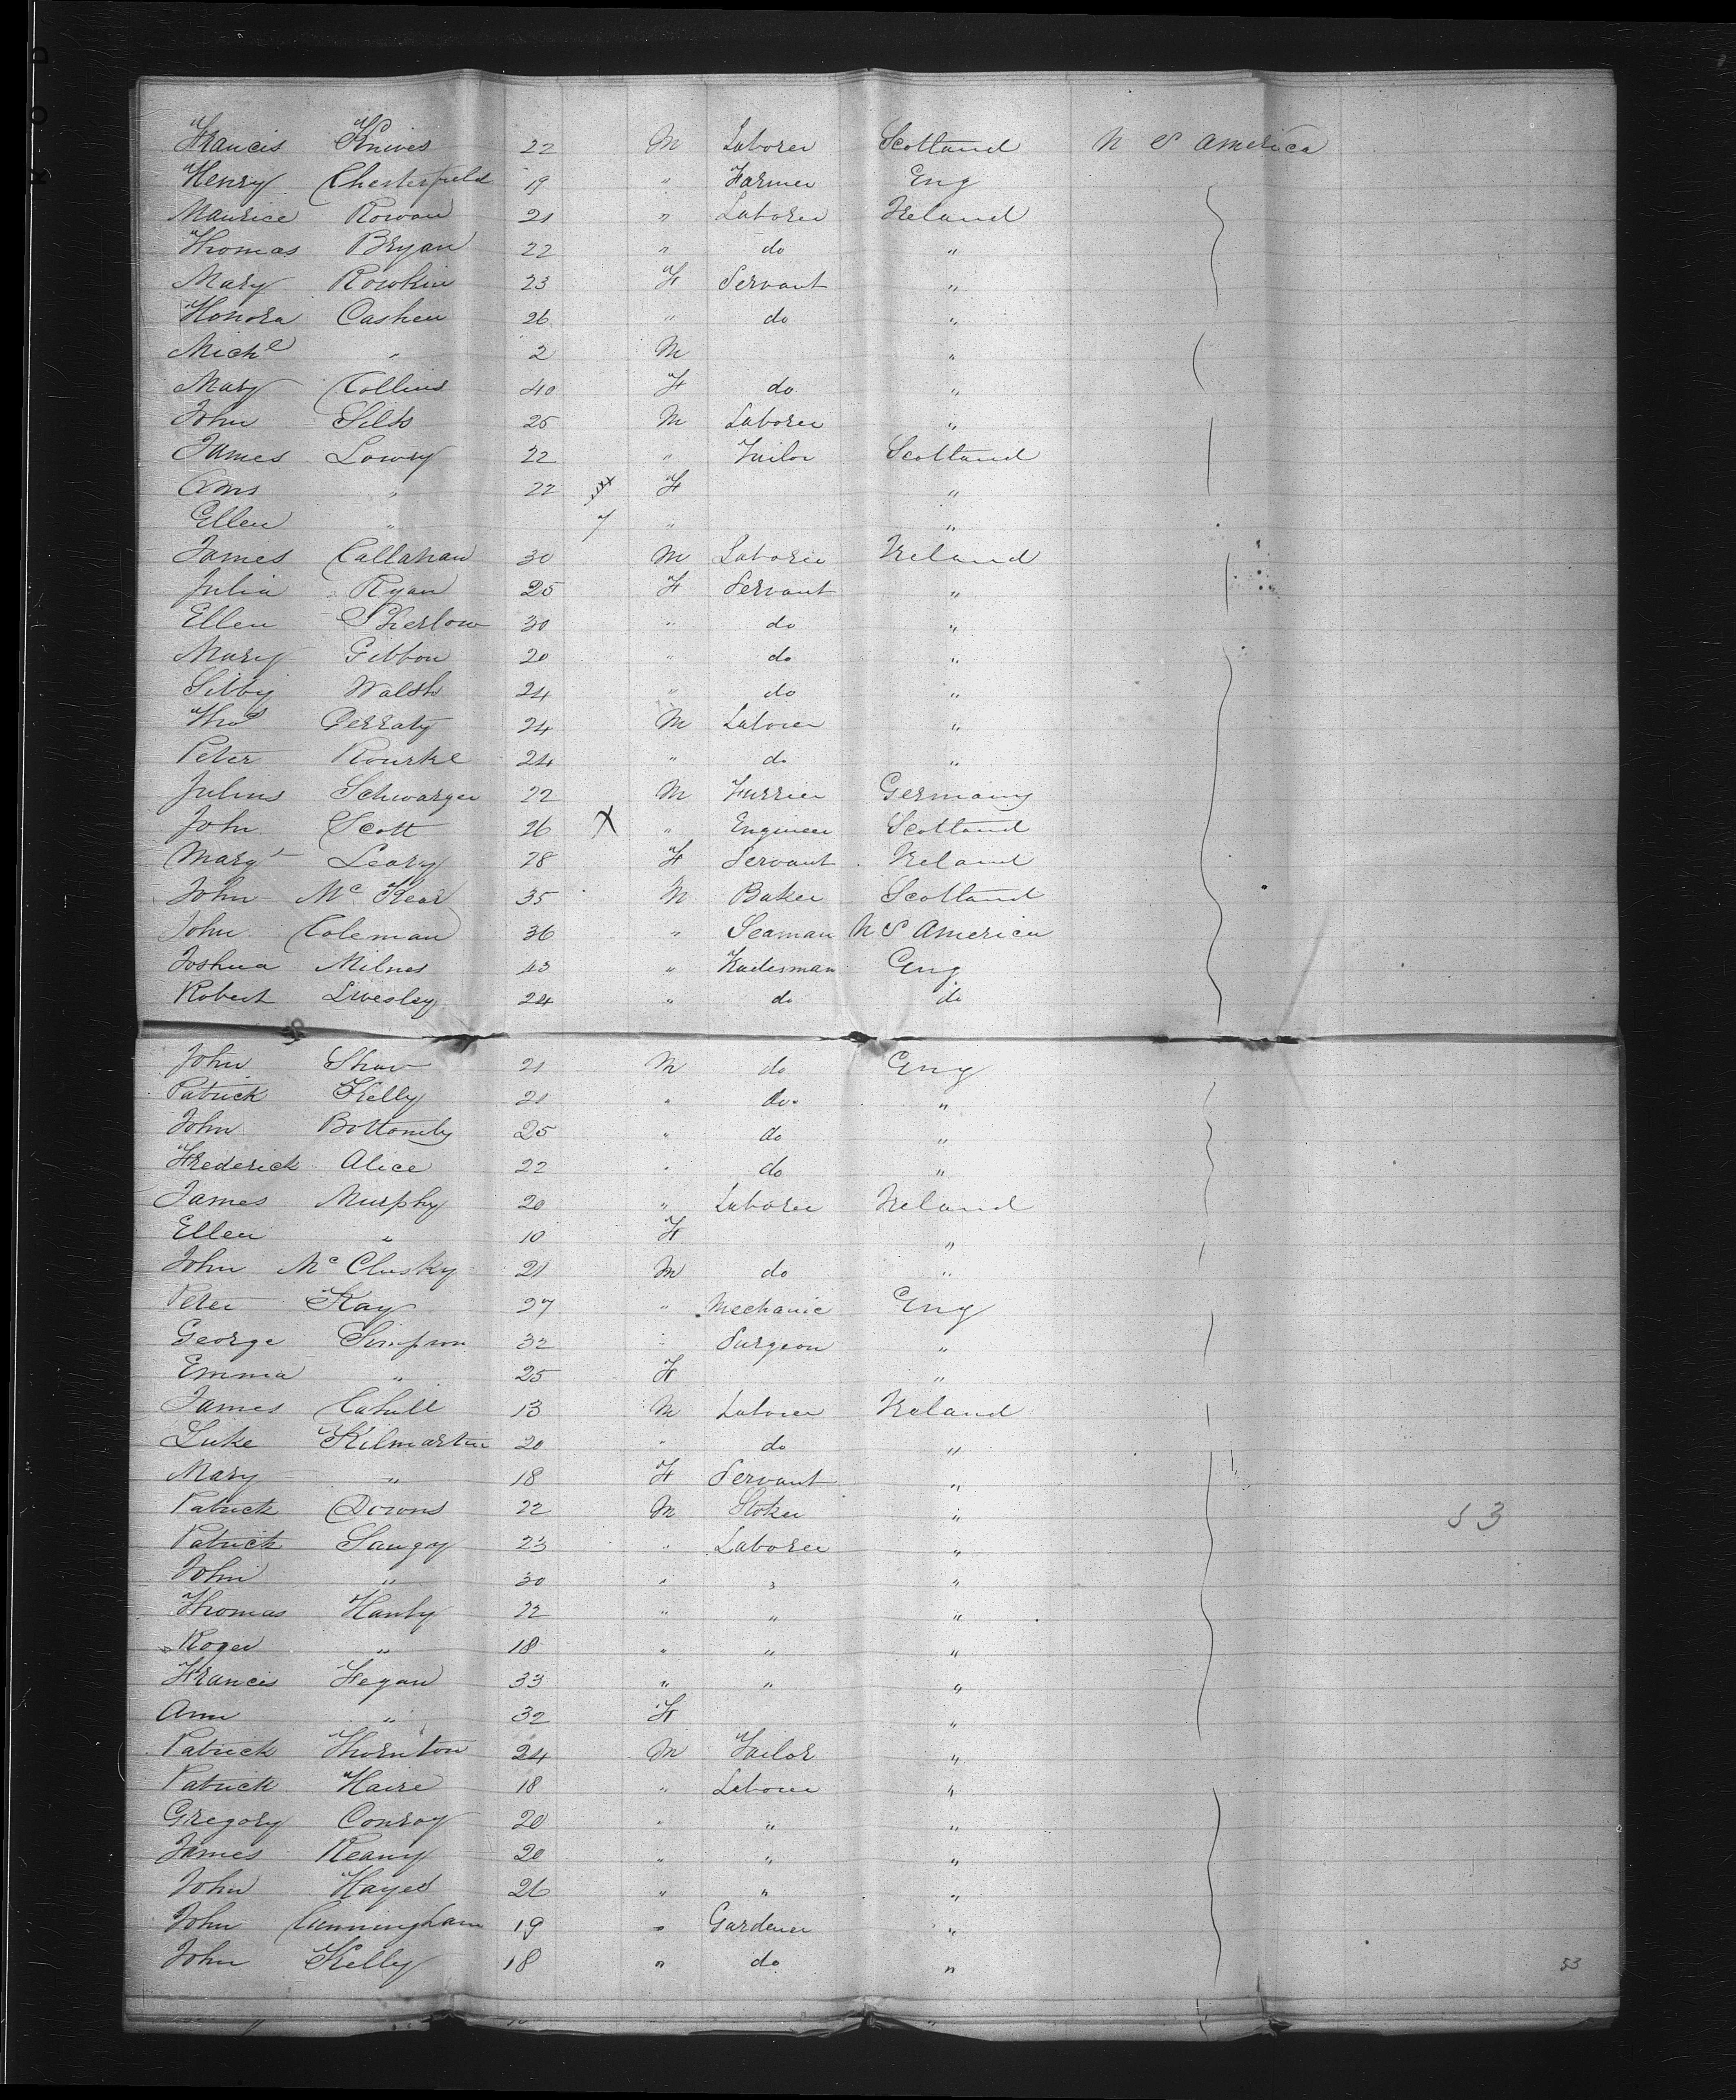 Francis Knives 22 M Laborer Scotland U S America
Henry Chesterfield 19 " Farmer Eng
Maurice Rowan 21 " Laborer Ireland
Thomas Bryan 22 " do "
Mary Rowkin 23 F Servant "
Honora Cashen 26 " do "
Michl " 2 M "
Mary Collins 40 F do "
John Silk 25 M Laborer "
James Lowry 22 " Tailor Scotland
22 F "
Ellen " 7 " "
James Callahan 30 M Laborer Ireland
Julia Ryan 25 F Servant "
Ellen Sherlow 30 " do "
Mary Gibbon 20 " do "
Sibby Walsh 24 " do "
Thos Gerraty 24 M Laborer "
Peter Rourke 24 " do "
Julius Schwarger 22 M Furrier Germany
John Scott 26 X " Engineer Scotland
Margt Leary 28 F Servant Ireland
John Mc Kear 35 M Baker Scotland
John Coleman 36 " Seaman U S America
Joshua Milnes 43 " Tradesman Eng
Robert Livesley 24 " do do
John Shaw 21 M do Eng
Patrick Kelly 21 " do "
John Bottomly 25 " do "
Frederick Alice 22 " do "
James Murphy 20 " Laborer Ireland
Ellen " 10 F "
John Mc Clusky 21 M do "
Peter Kay 27 " Mechanic Eng
George Simpson 32 " Surgeon "
Emma " 25 F "
James Cahill 13 M Laborer Ireland
Luke Kilmartin 20 " do "
Mary " 18 F Servant "
Patrick Downs 22 M Stoker " 53
Patrick Sangay 23 " Laborer "
John " 30 " " "
Thomas Hanly 22 " " "
Roger " 18 " " "
Francis Fegan 33 " " "
Ann " 32 F "
Patrick Thornton 24 M Tailor "
Patrick Haire 18 " Laborer "
Gregory Conroy 20 " " "
James Keany 20 " " "
John Hayes 26 " " "
John Cunningham 19 " Gardener "
John Kelly 18 " do " 53